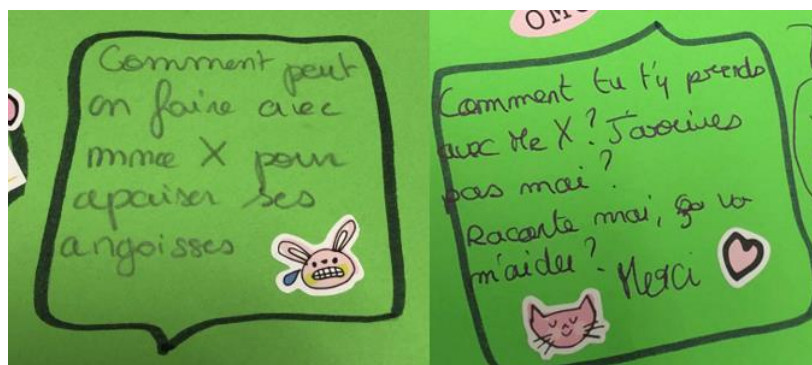 Comment peut
on faire avec
mme X pour
apaiser ses
angoisses
OMG
Comment tu t'y prends
avec Me X? J'arrives
pas moi?
Raconte moi, ça va
m'aider?
Merci